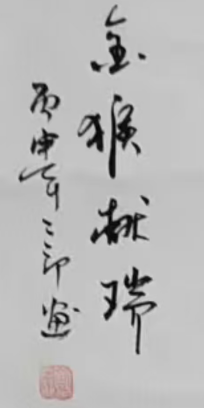 金猴献瑞
丙申年三郎画